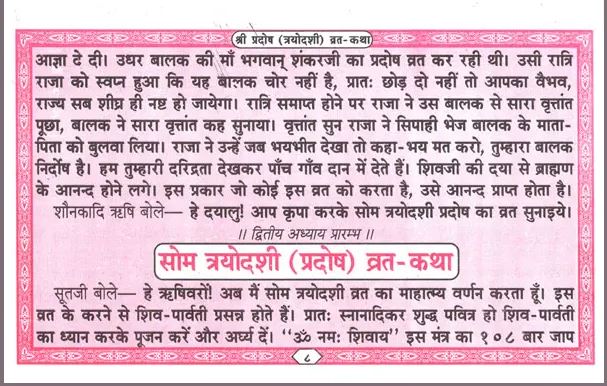 श्री प्रदोष (त्रयोदशी) व्रत-कथा
आज्ञा टे दी। उधर बालक की माँ भगवान् शंकरजी का प्रदोष व्रत कर रही थी। उसी रात्रि
राजा को स्वप्न हुआ कि यह बालक चोर नहीं है, प्रातः छोड़ दो नहीं तो आपका वैभव,
राज्य सब शीघ्र ही नष्ट हो जायेगा। रात्रि समाप्त होने पर राजा ने उस बालक से सारा वृत्तांत
पूछा, बालक ने सारा वृत्तांत कह सुनाया। वृत्तांत सुन राजा ने सिपाही भेज बालक के माता-
पिता को बुलवा लिया। राजा ने उन्हें जब भयभीत देखा तो कहा-भय मत करो, तुम्हारा बालक
निर्दोष है। हम तुम्हारी दरिद्रता देखकर पाँच गाँव दान में देते हैं। शिवजी की दया से ब्राह्मण
के आनन्द होने लगे। इस प्रकार जो कोई इस व्रत को करता है, उसे आनन्द प्राप्त होता है।
शौनकादि ऋषि बोले— हे दयालु! आप कृपा करके सोम त्रयोदशी प्रदोष का व्रत सुनाइये।
// द्वितीय अध्याय प्रारम्भ //
सोम त्रयोदशी (प्रदोष) व्रत-कथा
सूतजी बोले— हे ऋषिवरों! अब मैं सोम त्रयोदशी व्रत का माहात्म्य वर्णन करता हूँ। इस
व्रत के करने से शिव-पार्वती प्रसन्न होते हैं। प्रातः स्नानादिकर शुद्ध पवित्र हो शिव-पार्वती
का ध्यान करके पूजन करें और अर्घ्य दें। “ॐ नमः शिवाय” इस मंत्र का १०८ बार जाप
८